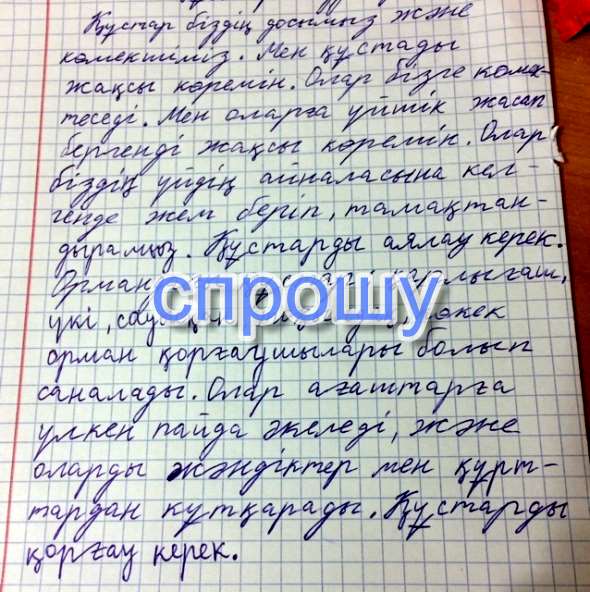 Құстар біздің досымыз және
көмекшіміз. Мен құстады
жақсы көремін. Олар бізге көмек-
теседі. Мен оларға үйшік жасап
бергенді жақсы көремін. Олар
біздің үйдің айналасына кел-
генде жем беріп, тамақтан-
дырамыз. Құстарды аялау керек.
Орман қарлығаш,
спрошу
үкі,
орман қорғаушылары болып
саналады. Олар ағаштарға
үлкен пайда әкеледі, және
оларды жәндіктер мен құрт-
тардан құтқарады. Құстарды
қорғау керек.